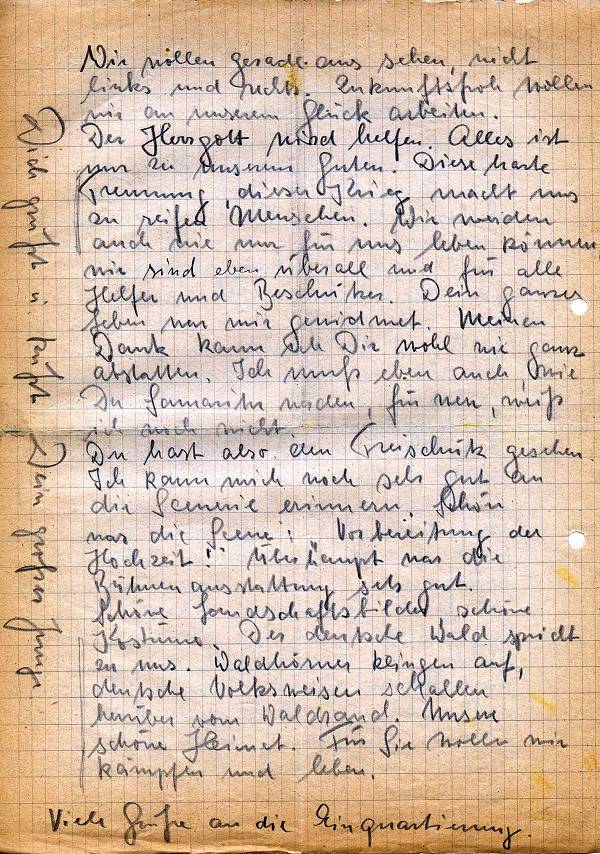 Wir wollen gerade aus sehen, nicht
links und rechts. Zukunftsfroh wollen
wir an unserem Glück arbeiten.
Der Herrgott wird helfen. Alles ist
nur zu unserem Guten. Diese harte
Trennung, dieser Krieg macht uns
zu reifen Menschen. Wir werden
auch nie nur für uns leben können,
wir sind eben überall und für alle
Helfer und Beschützer. Dein ganzes
Leben war mir gewidmet. Meinen
Dank kann ich Dir wohl nie ganz
abstatten. Ich muß eben auch, wie
Du Samariter werden, für wen, weiß
ich noch nicht.
Du hast also den Freischütz gesehen.
Ich kann mich noch sehr gut an
die Scenerie erinnern. Schön
war die Scene: Vorbereitung der
Hochzeit!" Überhaupt war die
Bühnenausstattung sehr gut.
Schöne Landschaftsbilder, schöne
Kostüme. Der deutsche Wald spricht
zu uns. Waldhörner klingen auf,
deutsche Volksweisen schallen
herüber vom Waldrand. Unsere
schöne Heimat. Für Sie wollen wir
kämpfen und leben.
Viele Grüße an die Einquartierung.
Dich grüßt u. küßt Dein großer Junge